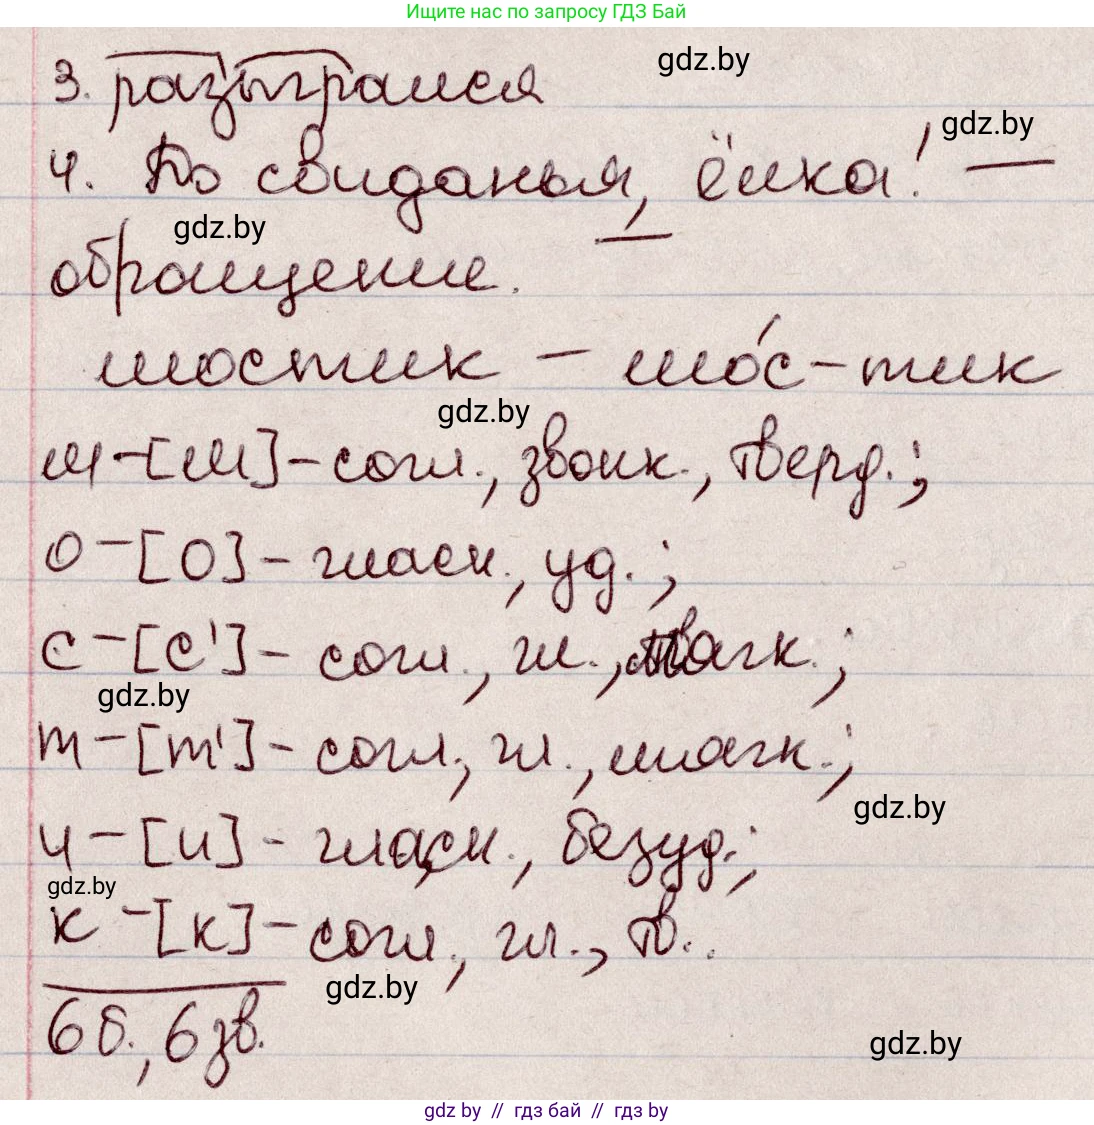 Ищите нас по запросу ГДЗ Бай
3. разыграися
gdz.by
4. До свиданья, ёлка! —
gdz.by
gdz.by
обращение.
мостик – мо́с-тик
gdz.by
м – [м] – согл., звонк., тверд.;
о – [о] – гласн., уд.;
с – [с'] – согл., гл., мягк.;
gdz.by
т – [т'] – согл., гл., мягк.;
gdz.by
и – [и] – гласн., безуд.;
gdz.by
к – [к] – согл., гл., тв..
gdz.by
6 б., 6 зв.
gdz.by
gdz by // гдз бай // гдз by